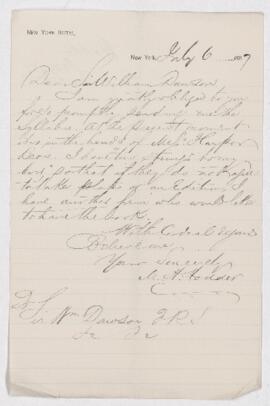 NEW YORK HOTEL
New York July 6 1887
Dear Sir William Dawson
I am greatly obliged to you
for so promptly sending me the
Syllabus. At the present moment
it is in the hands of Mess Harper
Bros. I shall
but if they do not agree
to take plates of an Edition, I
have another firm who would like
to have the book.
With cordial regards
Believe me,
Yours Sincerely
M. H. Hodder
Sir Wm Dawson F.R.S